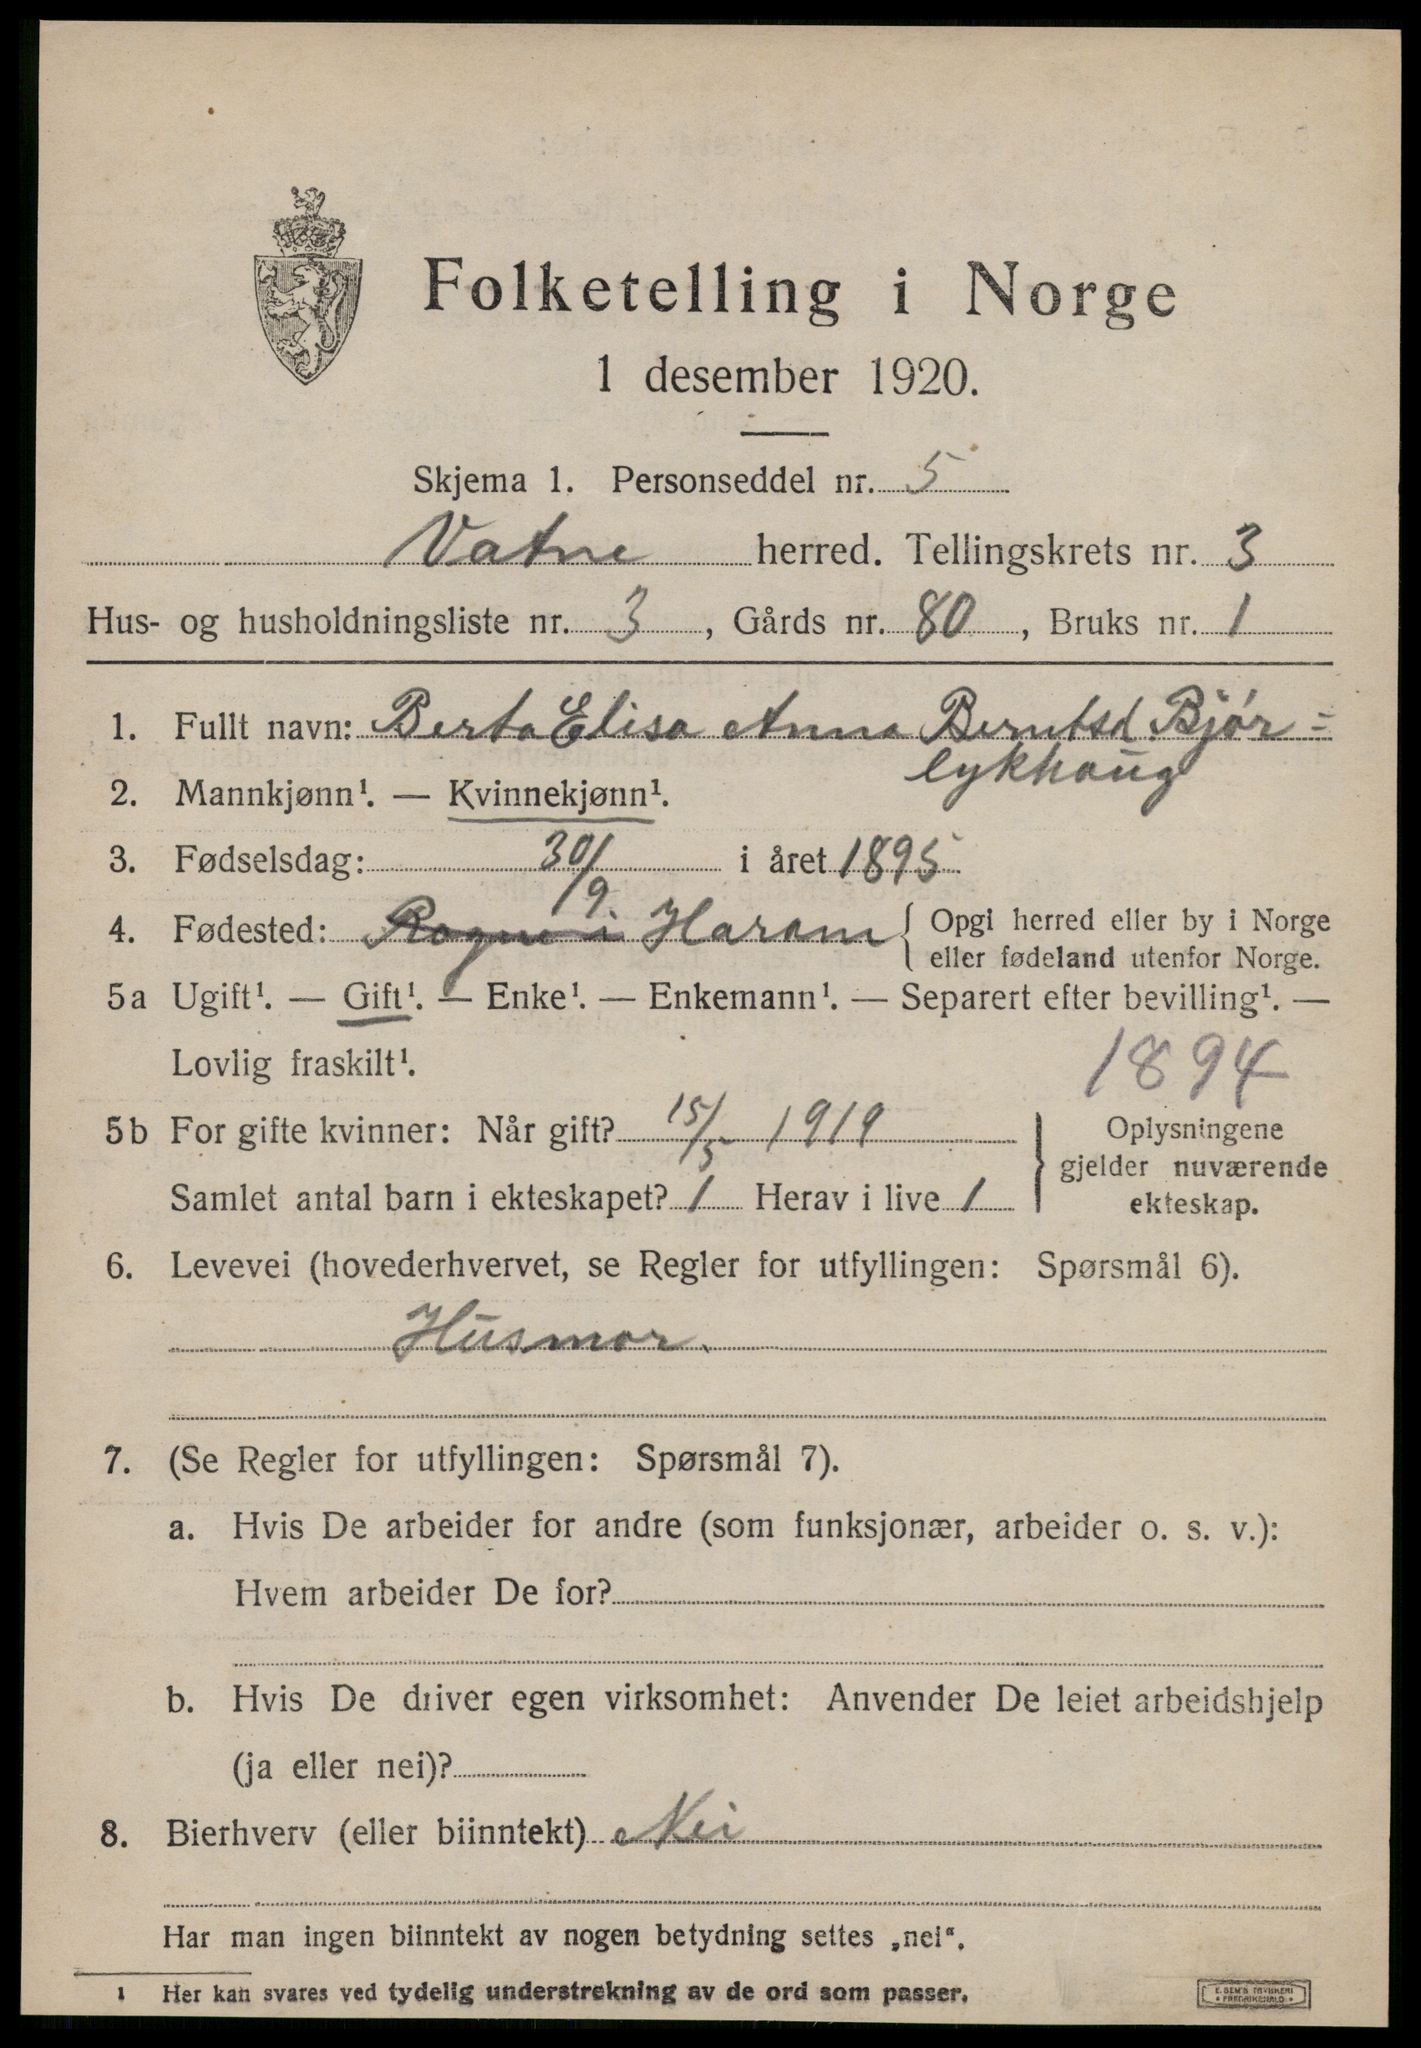 Folketelling i Norge
1 desember 1920.
Skjema 1. Personseddel nr. 5
Vatne herred. Tellingskrets nr. 3
Hus- og husholdningsliste nr. 3, Gårds nr. 80, Bruks nr. 1
1. Fullt navn: Berta Elisa Anna Berntsd. Bjør=
lykhaug
2. Mannkjønn¹. — Kvinnekjønn¹.
3. Fødselsdag: 30/9. i året 1895
4. Fødested: Rogne i Haram { Opgi herred eller by i Norge
eller fødeland utenfor Norge.
5a Ugift¹. — Gift¹. — Enke¹. — Enkemann¹. — Separert efter bevilling¹. —
Lovlig fraskilt¹.
1894
5b For gifte kvinner: Når gift? 15/5 1919
Samlet antal barn i ekteskapet? 1 Herav i live 1
} Oplysningene
gjelder nuværende
ekteskap.
6. Levevei (hovederhvervet, se Regler for utfyllingen: Spørsmål 6).
Husmor.
7. (Se Regler for utfyllingen: Spørsmål 7).
a. Hvis De arbeider for andre (som funksjonær, arbeider o. s. v.):
Hvem arbeider De for?
b. Hvis De driver egen virksomhet: Anvender De leiet arbeidshjelp
(ja eller nei)?
8. Bierhverv (eller biinntekt) Nei
Har man ingen biinntekt av nogen betydning settes „nei“.
1 Her kan svares ved tydelig understrekning av de ord som passer.
E. SEM'S TRYKKERI
• FREDRIKSHALD •